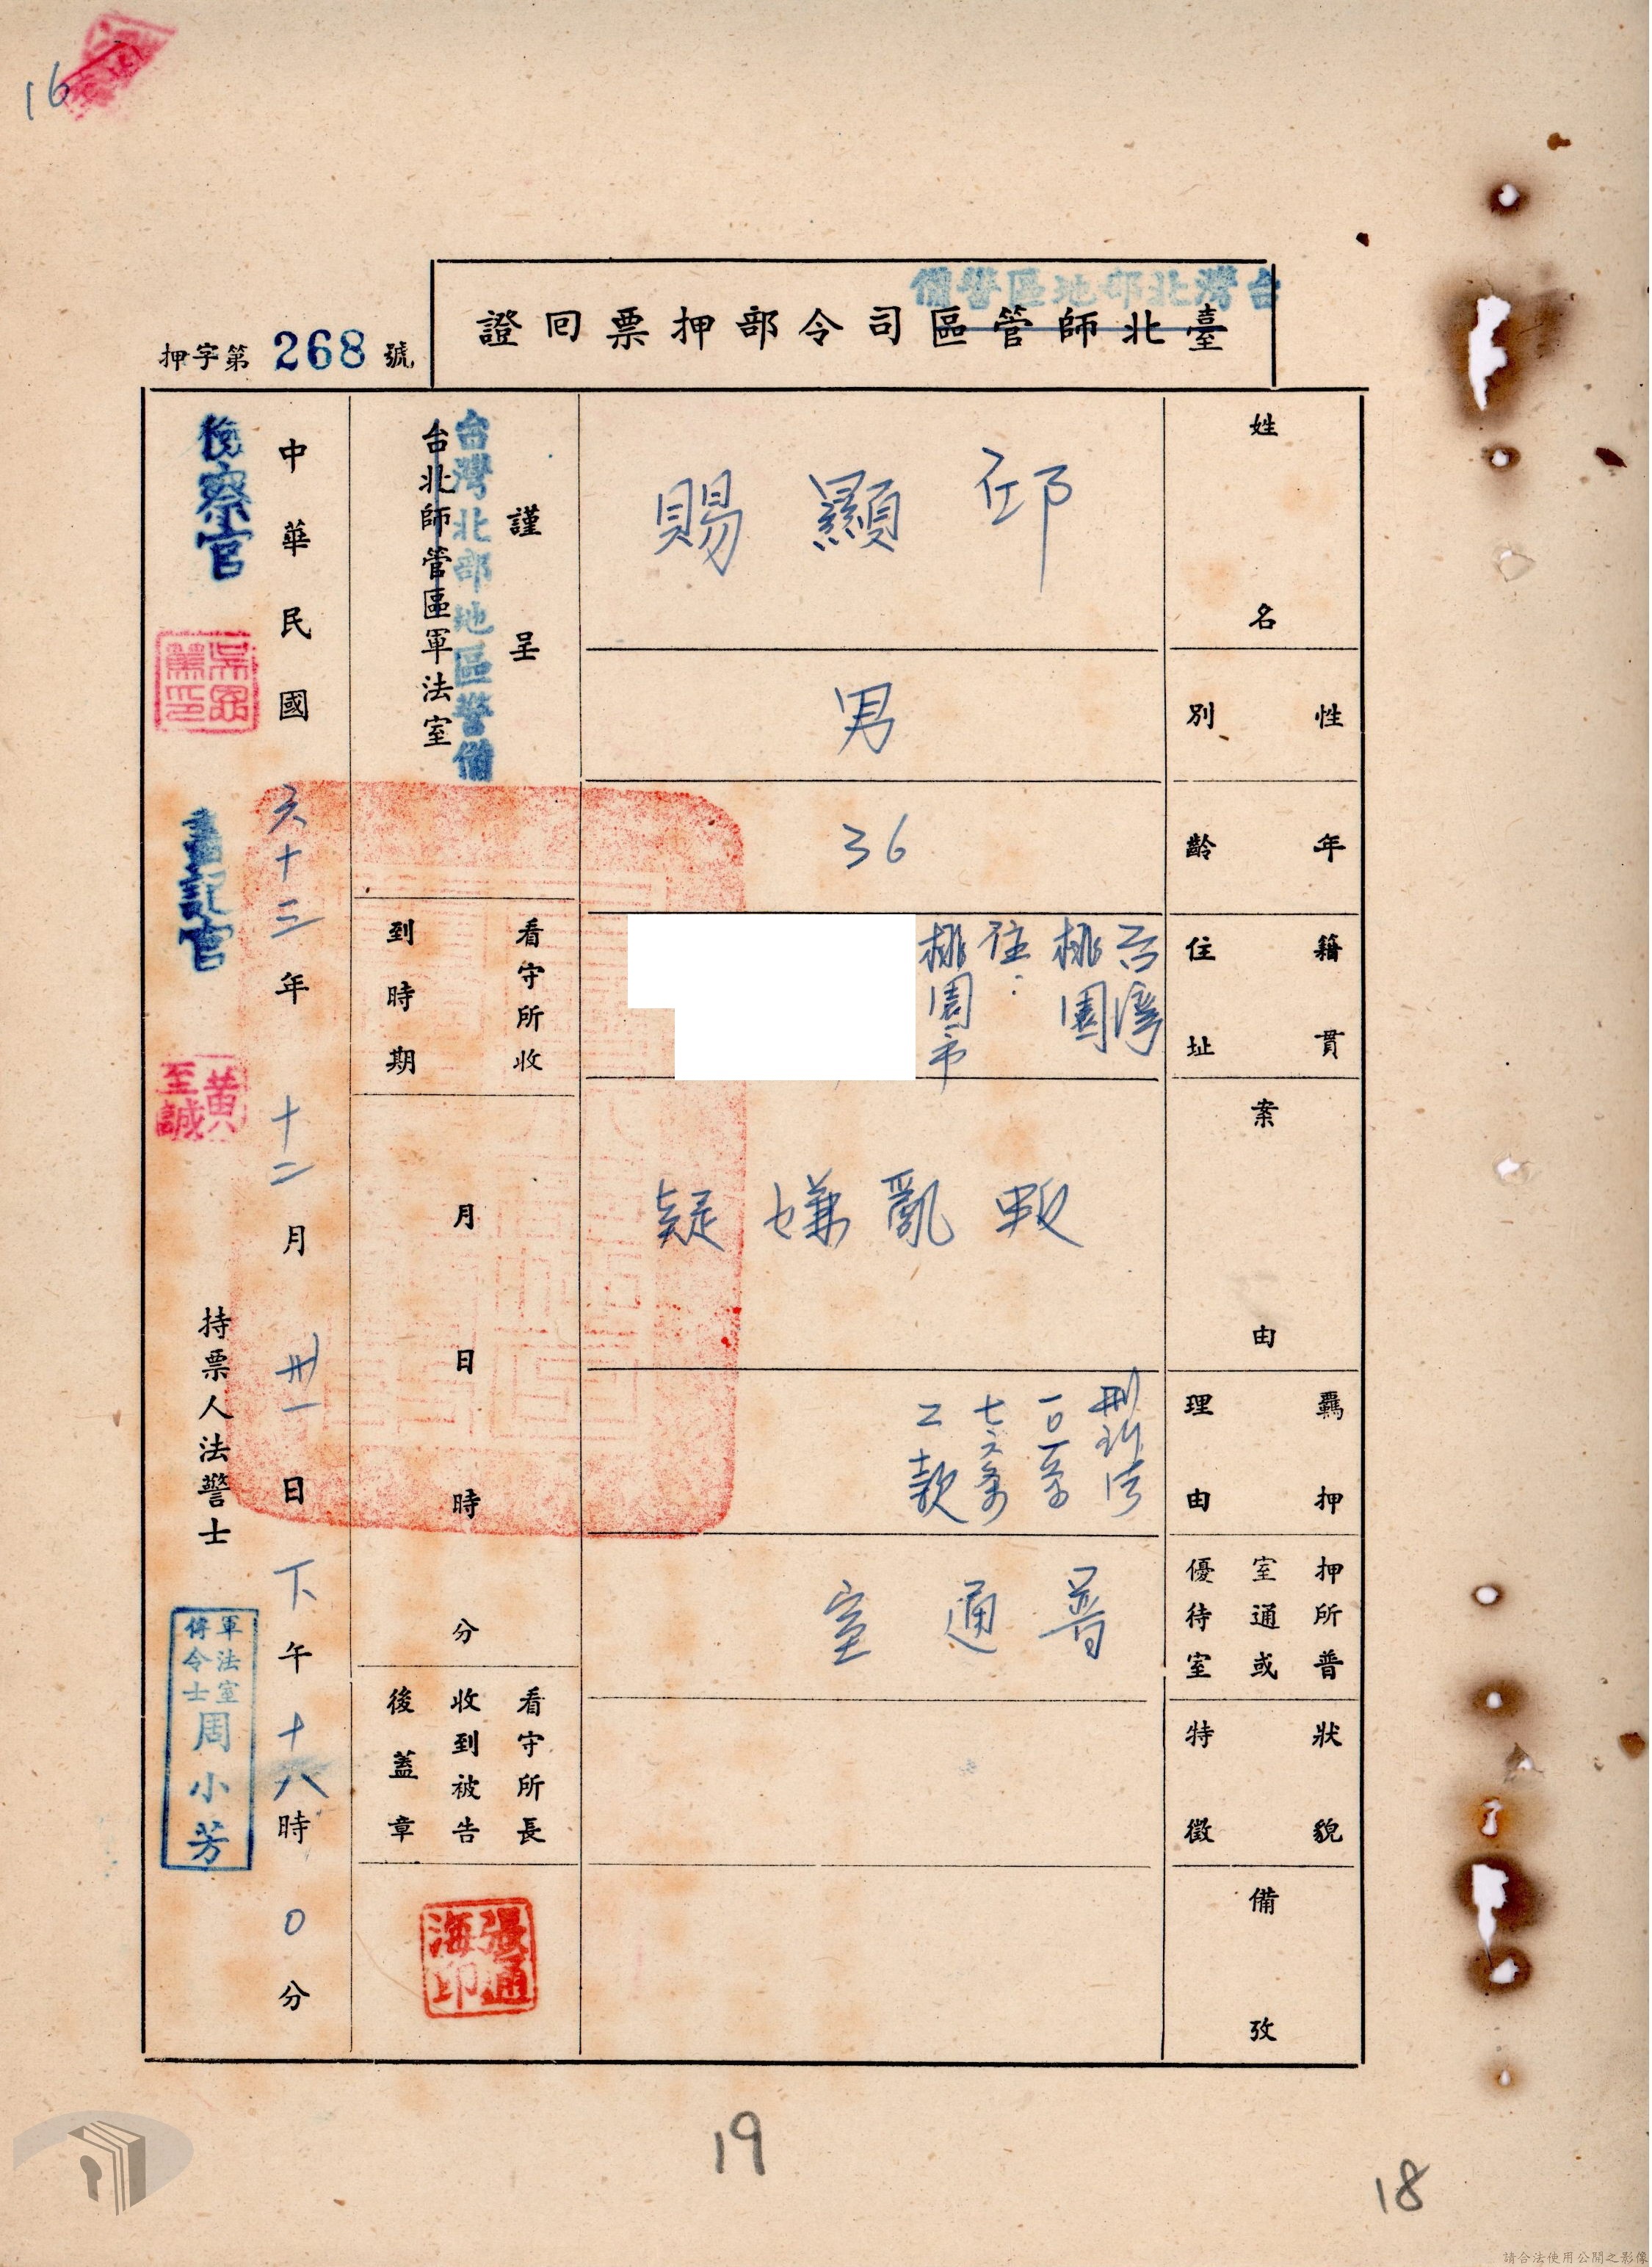 16
台灣北部地區警備
臺北師管區司令部押票回證
押字第268號
姓名
邱顯賜
性別
男
年齡
36
籍貫住址
台灣
桃園
住:
桃園市
案由
叛亂嫌疑
羈押理由
刑訴法
一〇一條
七六條
二款
押所普
室通或
優待室
普通室
狀貌
特徵
備攷
謹呈
台灣北部地區警備
台北師管區軍法室
看守所收
到時期
月日時分
看守所長
收到被告
後蓋章
張通海印
中華民國六十三年十二月卅一日下午十八時0分
檢察官
書記官
黃至誠
持票人法警士
軍法室
傳令士
周小芳
19
18
請合法使用公開之影像